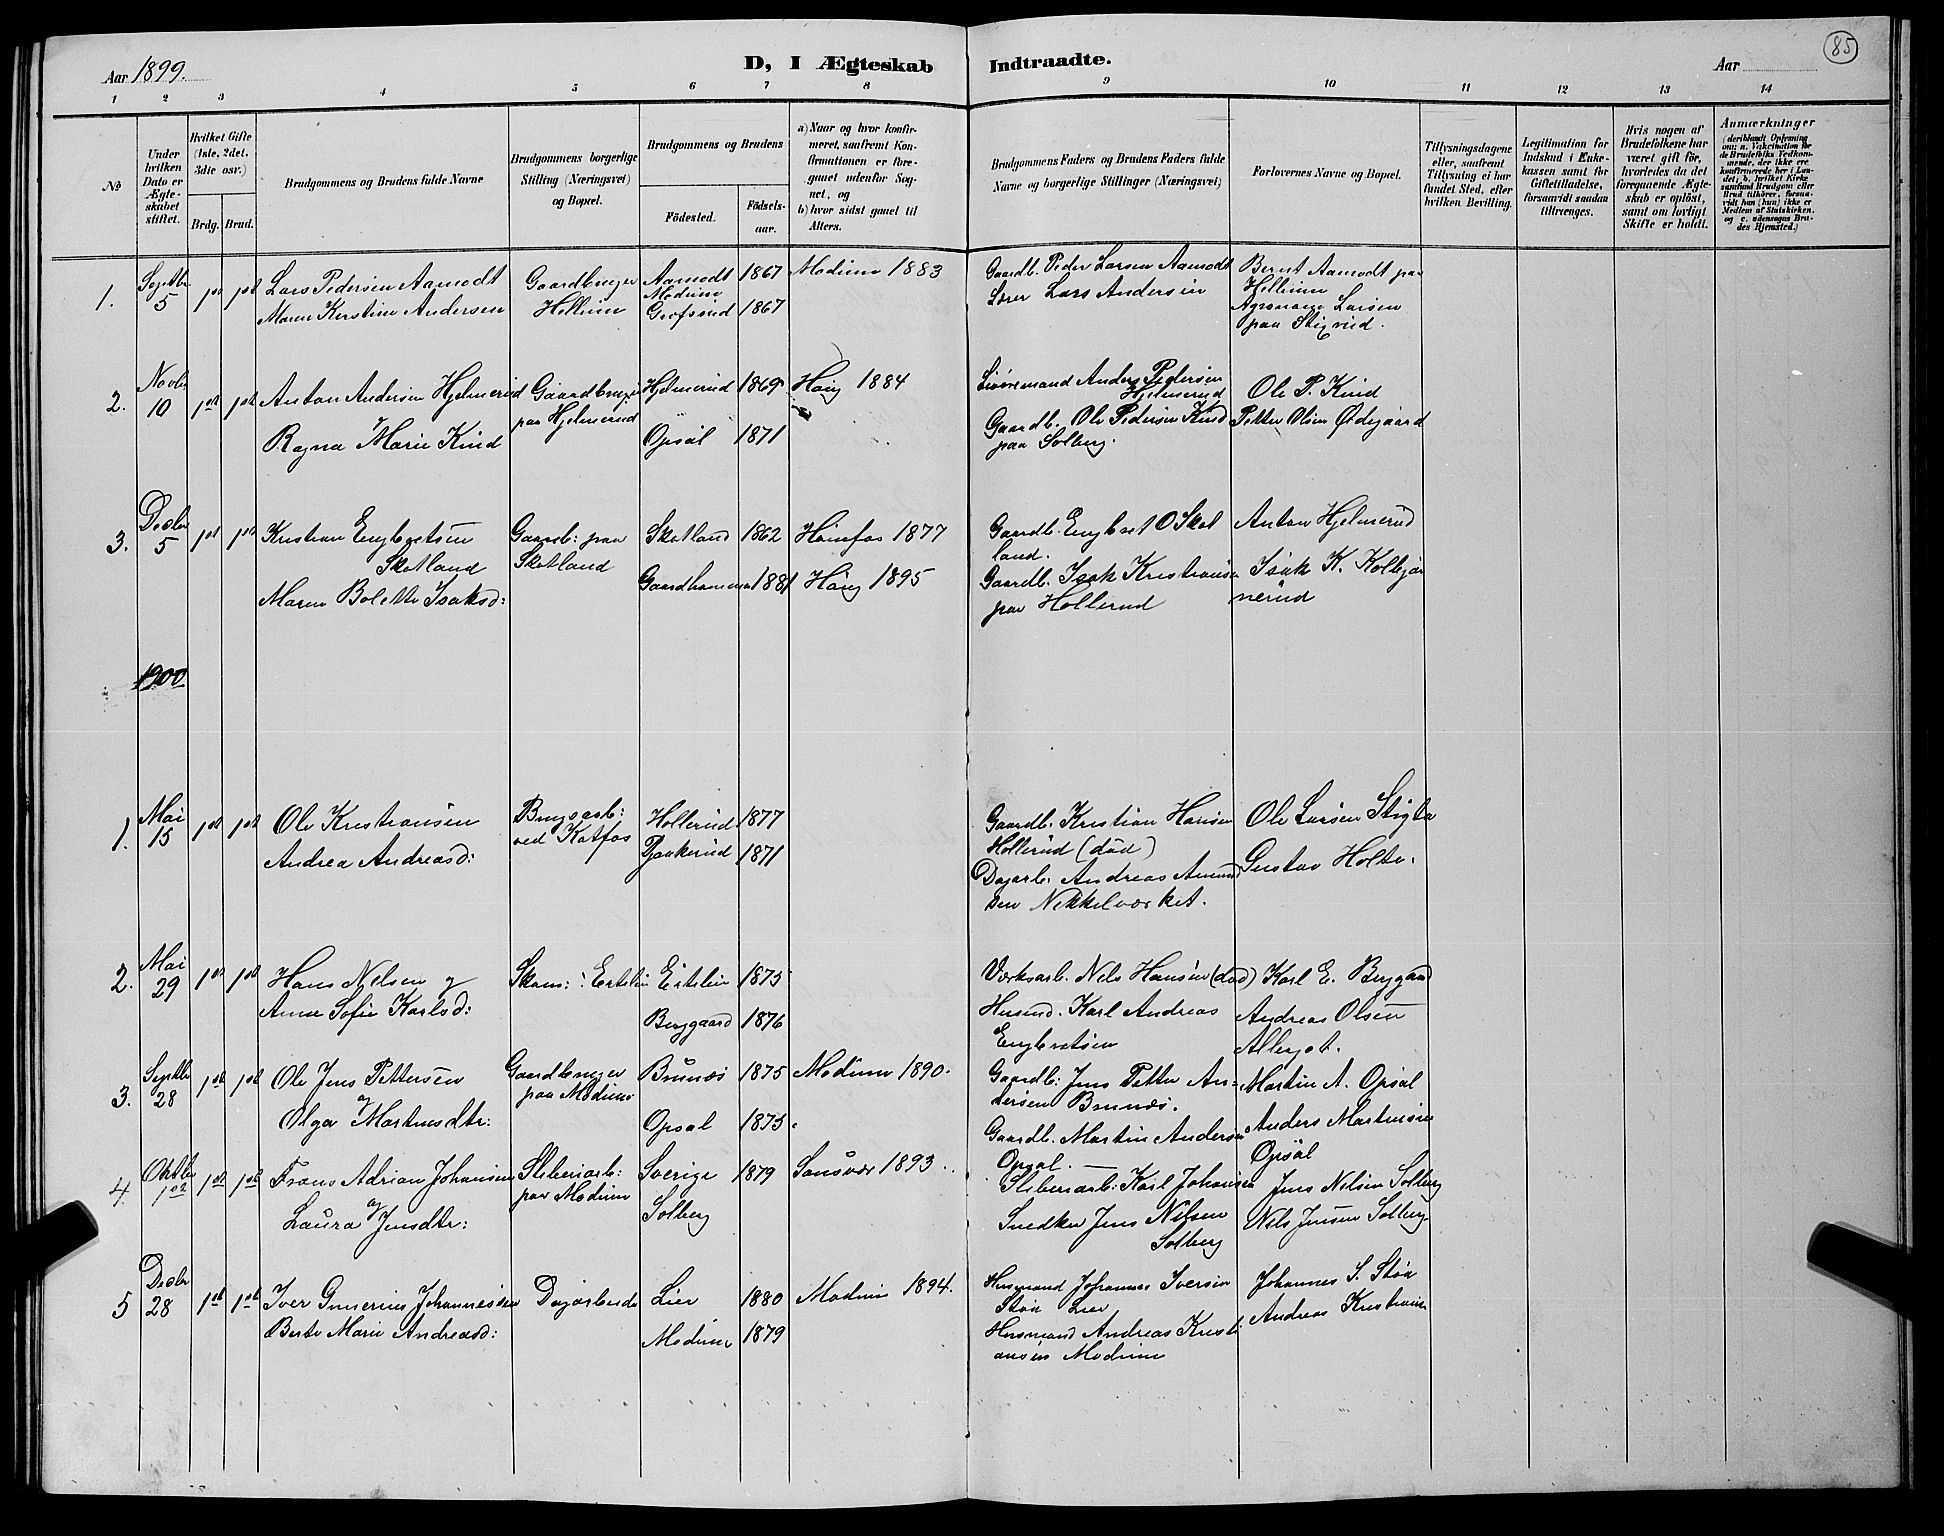 85
Aar 1899.
D, I Ægteskab Indtraadte.
Aar
1 2 3 4 5 6 7 8 9 10 11 12 13 14
No
Under hvilken Dato er Ægteskabet stiftet.
Hvilket Gifte (1ste, 2det, 3die osv.)
Brdg. Brud.
Brudgommens og Brudens fulde Navne
Brudgommens borgerlige Stilling (Næringsvei) og Bopæl.
Brudgommens og Brudens
Födested. Födselsaar.
a) Naar og hvor konfirmeret, saafremt Konfirmationen er foregaaet udenfor Sognet, og
b) hvor sidst gaaet til Alters.
Brudgommens Faders og Brudens Faders fulde Navne og borgerlige Stillinger (Næringsvei)
Forlovernes Navne og Bopæl.
Tillysningsdagene eller, saafremt Tillysning ei har fundet Sted, efter hvilken Bevilling.
Legitimation for Indskud i Enkekassen samt for Giftetilladelse, forsaavidt saadan tiltrænges.
Hvis nogen af Brudefolkene har været gift för, hvorledes da det foregaaende Ægteskab er oplöst, samt om lovligt Skifte er holdt.
Anmærkninger
(deriblandt Oplysning om: a. Vakcination for de Brudefolks Vedkommende, der ikke ere konfirmerede her i Landet; b. hvilket Kirkesamfund Brudgom eller Brud tilhörer, forsaavidt han (hun) ikke er Medlem af Statskirken, og c. udensogns Brudes Hjemsted.)
1. Septbr 5 1ste 1ste
Lars Pedersen Aamodt
Maren Kirstine Andersen
Gaardbruger
Hellum
Aamodt 1867
Modum
Grofsrud 1867
Modum 1883
Gaardb. Peder Larsen Aamodt
Lærer Lars Andersen
Bernt Aamodt paa
Hellum
Agronom Larsen
paa Stigrud.
2. Novbr 10 1ste 1ste
Anton Andersen Hjelmerud
Ragna Marie Kind
Gaardbruger
paa Hjelmerud
Hjelmerud 1869
Opsal 1871
Haug 1884
Anders Pedersen
Hjelmerud
Gaardb. Ole Pedersen Kind
paa Solberg.
Ole P. Kind
Petter Olsen Ødegaard
3. Decbr 5 1ste 1ste
Kristian Engbretsen
Skotland
Maren Bolette Isaksd:
Gaardb: paa
Skotland
Skotland 1862
Gaardhammer 1881
Hönefos 1877
Haug 1895
Gaardb. Engbret O Skot
land.
Gaardb. Isak Kristiansen
paa Hollerud
Anton Hjelmerud
Isak K. Kolbjör
nerud
1900
1. Mai 15 1ste 1ste
Ole Kristiansen
Andrea Andreasd:
Brugsarb:
ved Katfos
Hollerud 1877
Bjaakerud 1871
Gaardb. Kristian Hansen
Hollerud (död)
Dagarb: Andreas Amund
sen Nikkelværket.
Ole Larsen Stigla
Gustav Holte.
2. Mai 29 1ste 1ste
Hans Nielsen og
Anne Sofie Karlsd:
Skom: Ertelien
Ertelien 1875
Berggaard 1876
Værksarb. Nels Hansen (död)
Husmd. Karl Andreas
Engbretsen
Karl E. Berggaard
Andreas Olsen
3. Septbr 28 1ste 1ste
Ole Jens Pettersen
og
Olga Martinsdtr:
Gaardbruger
paa Modum
Brunæs 1875
Opsal 1873.
Modum 1890.
Gaardb: Jens Petter An=
dersen Brunæs.
Gaardb. Martin Andersen
Opsal. —
Martin A. Opsal
Anders Martinsen
Opsal
4. Oktbr 1ste 1ste 1ste
Frans Adrian Johansen
og
Laura Jensdtr:
Sliberiarb:
paa Modum
Sverige 1879
Solberg
Sansvær 1893.
Sliberiarb: Karl Johansen
Snedker Jens Nilsen
Solberg
Jens Nilsen Solberg
Nils Jensen Solberg
5 Decbr 28 1ste 1ste
Iver Gunerius Johannesen
Berte Marie Andreasd:
Dagarbeider
Lier 1880
Modum 1879
Modum 1894.
Husmand Johannes Iversen
Stöa Lier
Husmand Andreas Kristi
ansen Modum
Johannes S. Stöa
Andreas Kristiansen